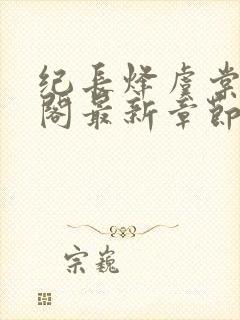 纪长烽虞棠
阁最新章节
宗巍